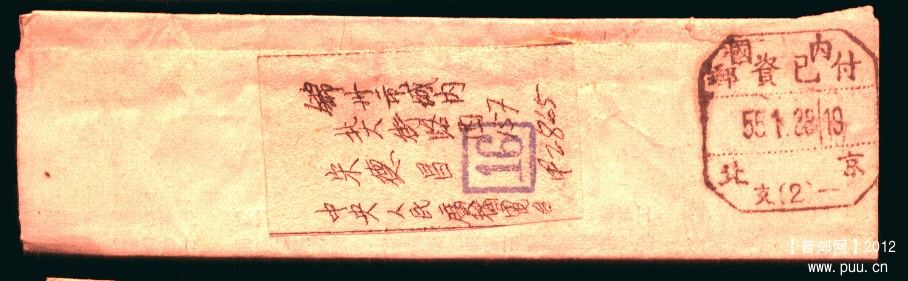 錦州市城内
北大街路西157
朱德昌
中央人民廣播電台
#2865
16
國内
郵資已付
55.1.28 19
北京
支(2)一
【普邮网】2012
www.puu.cn